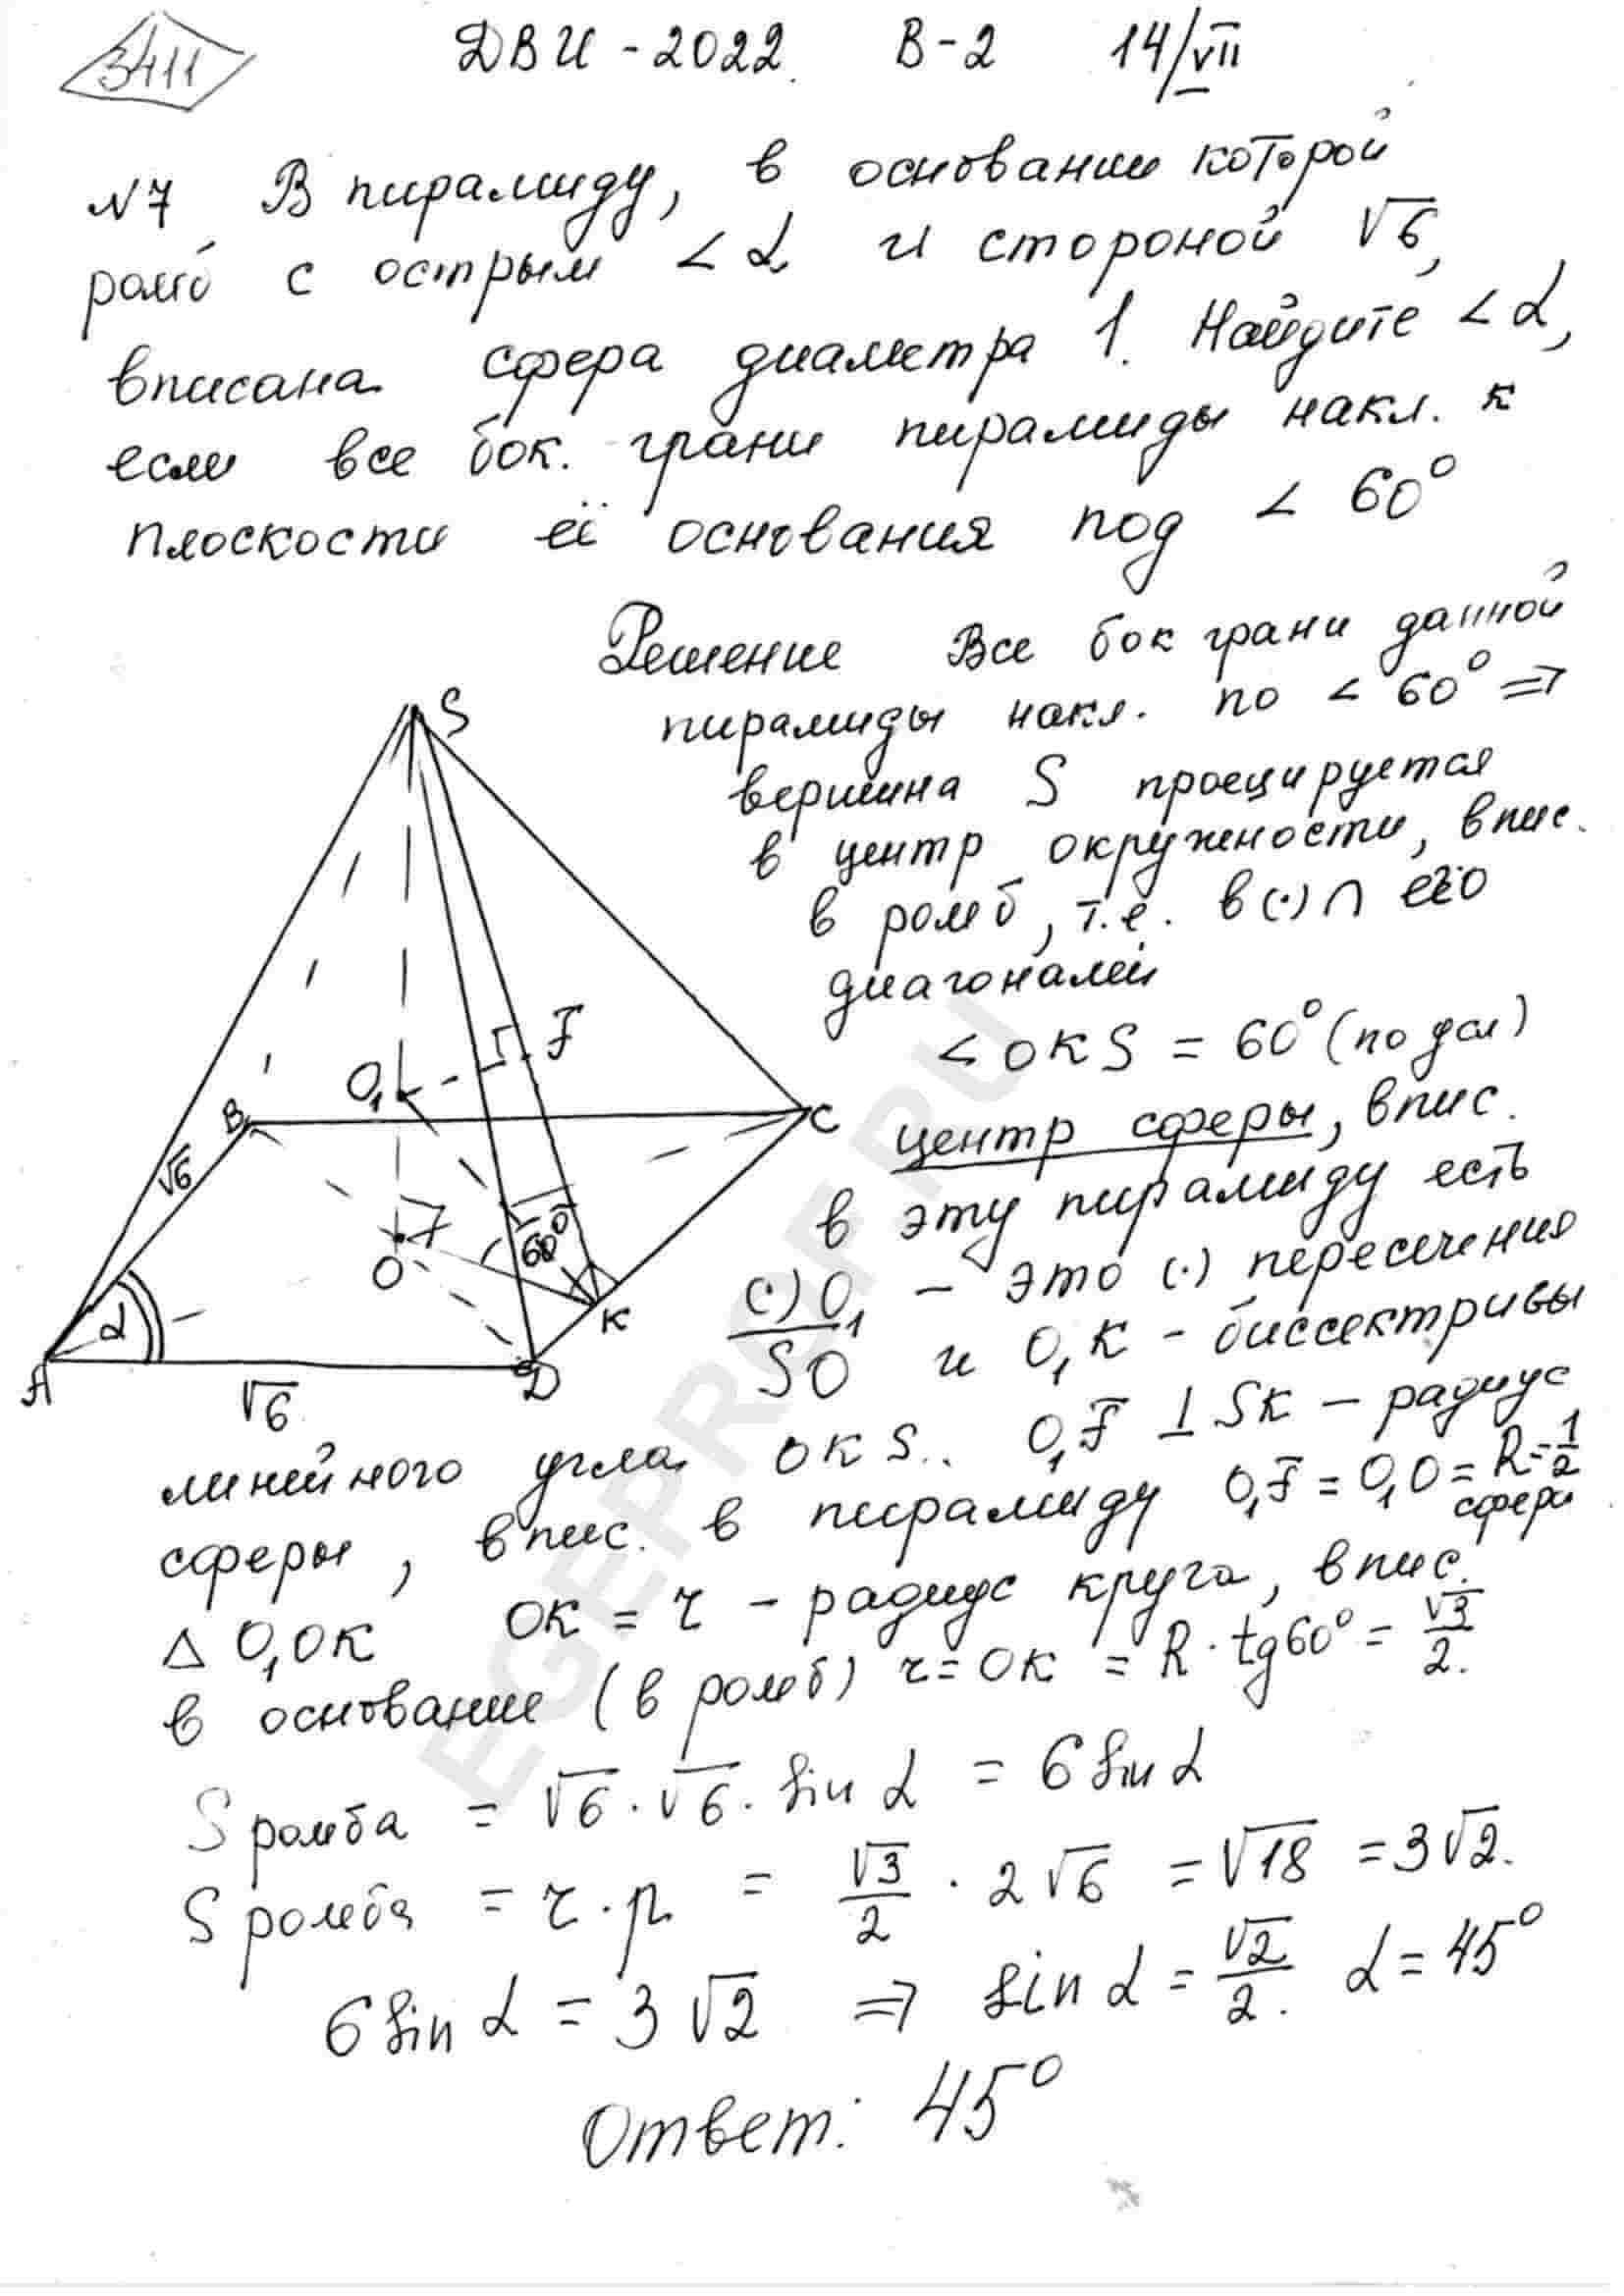 3411
ДВИ - 2022. В-2 14/VII
№7 В пирамиду, в основании которой
ромб с острым < α и стороной √6,
вписана сфера диаметра 1. Найдите < α,
если все бок. грани пирамиды накл. к
плоскости её основания под < 60°
Решение Все бок грани данной
пирамиды накл. по < 60° ⇒
вершина S проецируется
в центр окружности, впис.
в ромб, т.е. в (·) ∩ его
диагоналей
< OKS = 60° (по усл)
центр сферы, впис.
в эту пирамиду есть
(·) O₁ – это (·) пересечения
SO и O₁K - биссектрисы
линейного угла OKS.. O₁F ⊥ SK – радиус
сферы, впис. в пирамиду O₁F = O₁O = R = 1/2
сферы
△ O₁OK OK = r – радиус круга, впис.
в основание (в ромб) r = OK = R · tg60° = √3/2.
S ромба = √6 · √6 · sin α = 6 sin α
S ромба = r · p = √3/2 · 2√6 = √18 = 3√2.
6 sin α = 3√2 ⇒ sin α = √2/2. α = 45°
Ответ: 45°
S
F
O₁
B
C
√6
60°
O
K
α
A
D
√6
EGEPROF.RU